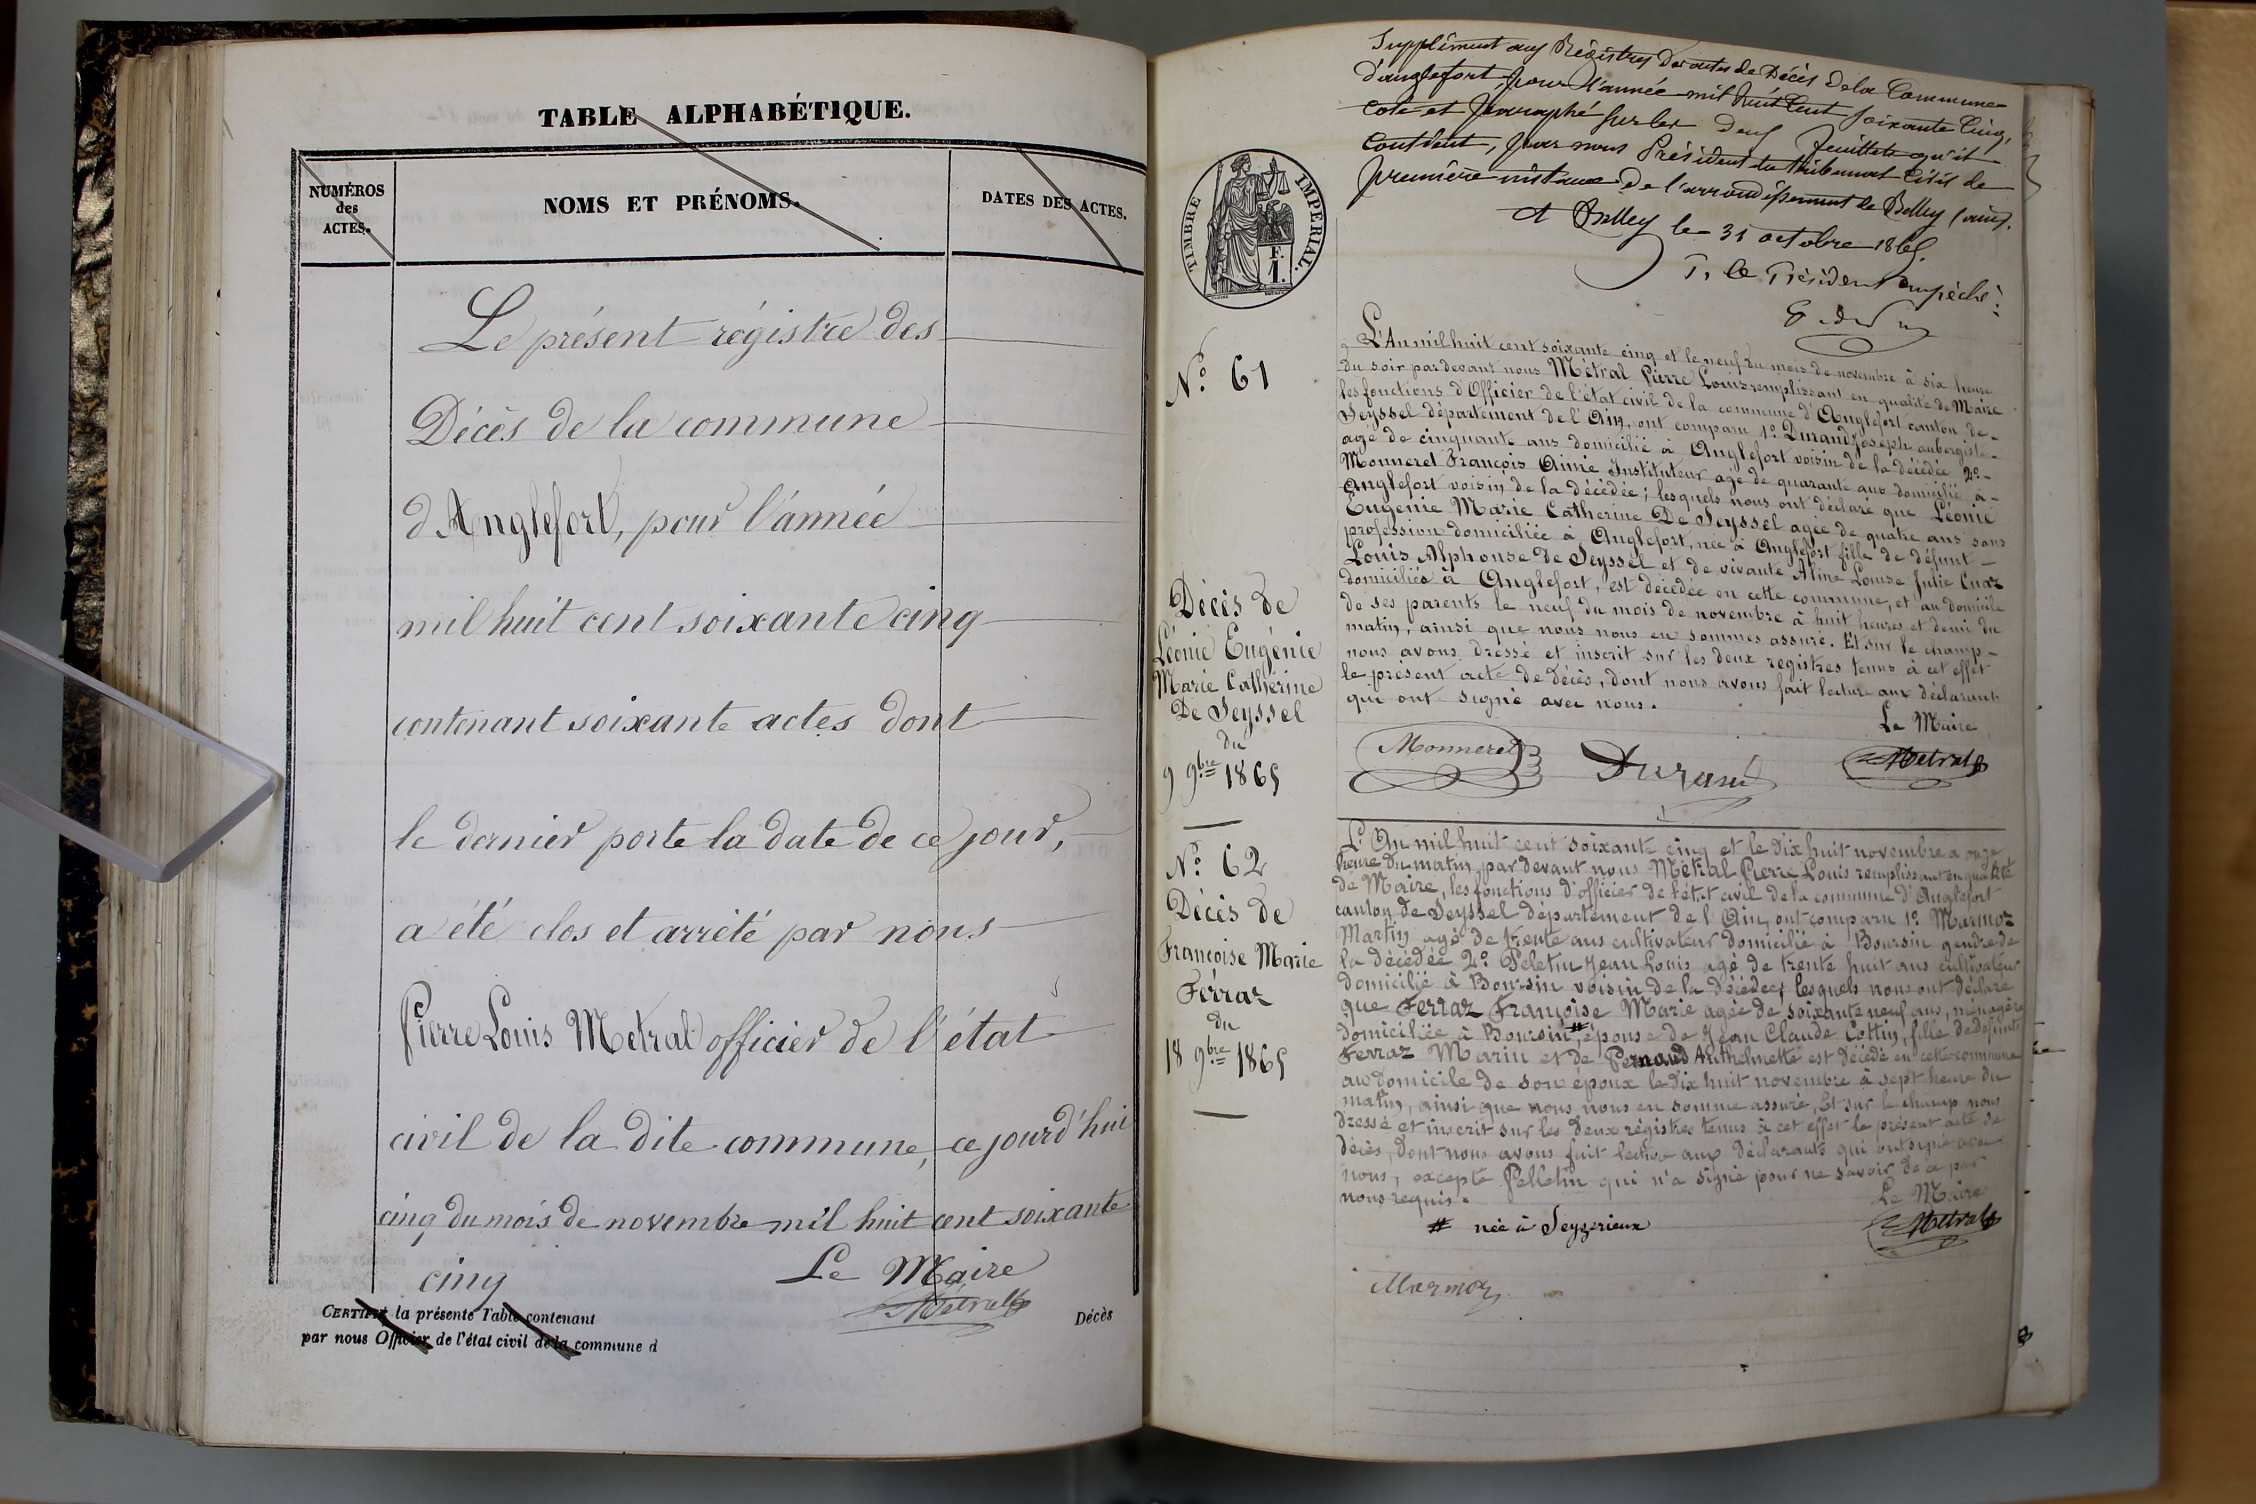 TABLE ALPHABÉTIQUE.
NUMÉROS
des
ACTES.
NOMS ET PRÉNOMS.
DATES DES ACTES.
Le présent régistre des
Décès de la commune
d'Anglefort, pour l'année
mil huit cent soixante cinq
contenant soixante actes dont
le dernier porte la date de ce jour,
a été clos et arrêté par nous
Pierre Louis Métral officier de l'état
civil de la dite commune, ce jourd'hui
cinq du mois de novembre mil huit cent soixante
cinq
Le Maire
Métral
CERTIFIÉ la présente Table contenant
Décès
par nous Officier de l'état civil de la commune d
Supplément aux Régistres des actes de Décès de la Commune
d'anglefort, pour l'année mil huit Cent soixante Cinq,
Coté et paraphé sur les deux feuillets qu'il
Contient, par nous Président du tribunal Civil de
première instance de l'arrondissement de Belley (ain).
A Belley le 31 octobre 1865.
P. le Président empêché :
TIMBRE IMPERIAL.
F.
1.
N.º 61
Décès de
Léonie Eugénie
Marie Cathérine
De Seyssel
du
9 9bre 1865
L'An mil huit cent soixante cinq et le neuf du mois de novembre à six heure
du soir par devant nous Métral Pierre Louis remplissant en qualité de Maire
les fonctions d'Officier de l'état civil de la commune d'Anglefort canton de
Seyssel département de l'Ain, ont comparu 1.º Durand Joseph aubergiste
agé de cinquante ans domicilié à Anglefort voisin de la décédée 2.º
Monneret François Aimé Instituteur agé de quarante ans domicilié à
Anglefort voisin de la décédée; lesquels nous ont déclaré que Léonie
Eugénie Marie Catherine De Seyssel agée de quatre ans sans
profession domiciliée à Anglefort, née à Anglefort fille de défunt
Louis Alphonse de Seyssel et de vivante Aline Louise Julie Cuaz
domiciliés à Anglefort, est décédée en cette commune, et au domicile
de ses parents le neuf du mois de novembre à huit heures et demi du
matin, ainsi que nous nous en sommes assuré. Et sur le champ
nous avons dressé et inscrit sur les deux registres tenus à cet effet
le présent acte de Décès, dont nous avons fait lecture aux déclarants
qui ont signé avec nous.
Le Maire
Monneret
Durand
Métral
N.º 62
Décès de
Françoise Marie
Ferraz
du
18 9bre 1865
L'An mil huit cent soixante cinq et le dix huit novembre a onze
heure du matin, par devant nous Métral Pierre Louis remplissant en qualité
de Maire, les fonctions d'officier de l'état civil de la commune d'Anglefort
canton de Seyssel département de l'Ain, ont comparu 1.º Marmoz
Martin agé de trente ans cultivateur domicilié à Boursin gendre de
la décédée 2.º Peletin Jean Louis agé de trente huit ans cultivateur
domicilié à Boursin voisin de la décédée, lesquels nous ont déclaré
que Ferraz Françoise Marie agée de soixante neuf ans, ménagère
domiciliée à Boursin #, épouse de Jean Claude Cottin, fille de défunt
Ferraz Marin et de Pernaud Anthelmette est décédé en cette commune
au domicile de son époux le dix huit novembre à sept heure du
matin, ainsi que nous nous en somme assuré, Et sur le champ nous
dressé et inscrit sur les deux régistres tenus à cet effet le présent acte de
décès, dont nous avons fait lecture aux déclarants qui ont signé avec
nous, excepté Pelletin qui n'a signé pour ne savoir de ce par
nous requis.
Le Maire
# née à Seyzerieux
Métral
Marmoz